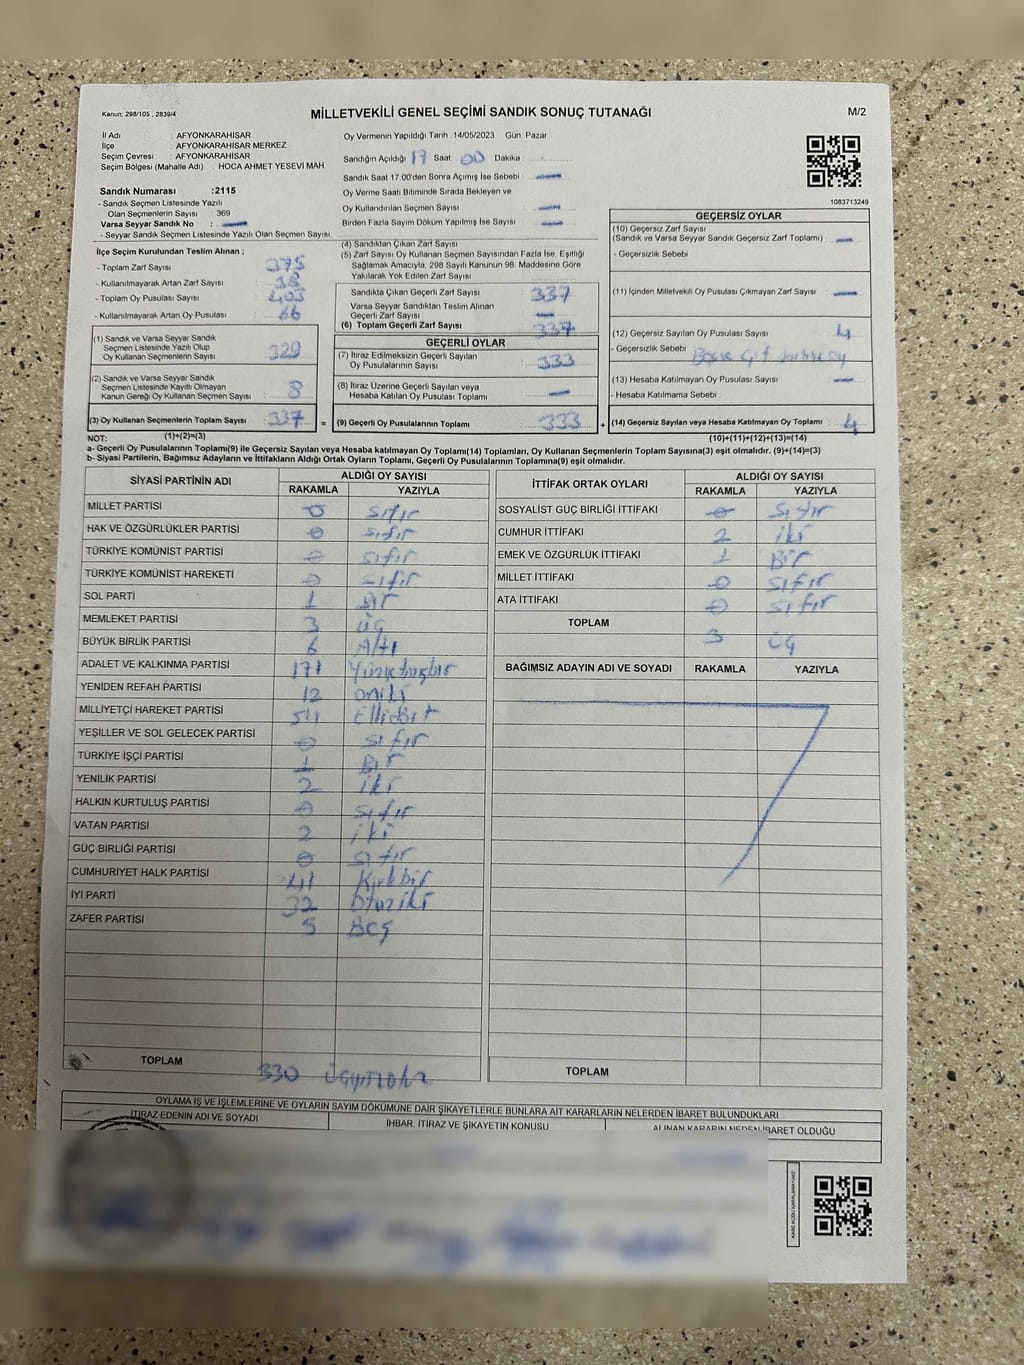 Kanun: 298/105 , 2839/4
MİLLETVEKİLİ GENEL SEÇİMİ SANDIK SONUÇ TUTANAĞI
M/2
İl Adı : AFYONKARAHİSAR
İlçe : AFYONKARAHİSAR MERKEZ
Seçim Çevresi : AFYONKARAHİSAR
Seçim Bölgesi (Mahalle Adı) : HOCA AHMET YESEVİ MAH.
Sandık Numarası :2115
- Sandık Seçmen Listesinde Yazılı
Olan Seçmenlerin Sayısı 369
Varsa Seyyar Sandık No : —
- Seyyar Sandık Seçmen Listesinde Yazılı Olan Seçmen Sayısı
Oy Vermenin Yapıldığı Tarih :14/05/2023 Gün: Pazar
Sandığın Açıldığı 17 Saat 00 Dakika
Sandık Saat 17.00'den Sonra Açılmış İse Sebebi —
Oy Verme Saati Bitiminde Sırada Bekleyen ve
Oy Kullandırılan Seçmen Sayısı —
Birden Fazla Sayım Döküm Yapılmış İse Sayısı —
1083713249
İlçe Seçim Kurulundan Teslim Alınan ;
- Toplam Zarf Sayısı 375
- Kullanılmayarak Artan Zarf Sayısı 38
- Toplam Oy Pusulası Sayısı 403
- Kullanılmayarak Artan Oy Pusulası 66
(1) Sandık ve Varsa Seyyar Sandık
Seçmen Listesinde Yazılı Olup
Oy Kullanan Seçmenlerin Sayısı 329
(2) Sandık ve Varsa Seyyar Sandık
Seçmen Listesinde Kayıtlı Olmayan
Kanun Gereği Oy Kullanan Seçmen Sayısı 8
(3) Oy Kullanan Seçmenlerin Toplam Sayısı 337 =
(1)+(2)=(3)
(4) Sandıktan Çıkan Zarf Sayısı
(5) Zarf Sayısı Oy Kullanan Seçmen Sayısından Fazla İse, Eşitliği
Sağlamak Amacıyla, 298 Sayılı Kanunun 98. Maddesine Göre
Yakılarak Yok Edilen Zarf Sayısı
Sandıkta Çıkan Geçerli Zarf Sayısı 337
Varsa Seyyar Sandıktan Teslim Alınan
Geçerli Zarf Sayısı —
(6) Toplam Geçerli Zarf Sayısı 337
GEÇERLİ OYLAR
(7) İtiraz Edilmeksizin Geçerli Sayılan
Oy Pusulalarının Sayısı 333
(8) İtiraz Üzerine Geçerli Sayılan veya
Hesaba Katılan Oy Pusulası Toplamı —
(9) Geçerli Oy Pusulalarının Toplamı 333 +
GEÇERSİZ OYLAR
(10) Geçersiz Zarf Sayısı
(Sandık ve Varsa Seyyar Sandık Geçersiz Zarf Toplamı) —
- Geçersizlik Sebebi
(11) İçinden Milletvekili Oy Pusulası Çıkmayan Zarf Sayısı —
(12) Geçersiz Sayılan Oy Pusulası Sayısı 4
- Geçersizlik Sebebi
(13) Hesaba Katılmayan Oy Pusulası Sayısı —
- Hesaba Katılmama Sebebi
(14) Geçersiz Sayılan veya Hesaba Katılmayan Oy Toplamı 4
(10)+(11)+(12)+(13)=(14)
NOT:
a- Geçerli Oy Pusulalarının Toplamı(9) ile Geçersiz Sayılan veya Hesaba katılmayan Oy Toplamı(14) Toplamları, Oy Kullanan Seçmenlerin Toplam Sayısına(3) eşit olmalıdır. (9)+(14)=(3)
b- Siyasi Partilerin, Bağımsız Adayların ve İttifakların Aldığı Ortak Oyların Toplamı, Geçerli Oy Pusulalarının Toplamına(9) eşit olmalıdır.
SİYASİ PARTİNİN ADI ALDIĞI OY SAYISI
RAKAMLA YAZIYLA
MİLLET PARTİSİ 0 sıfır
HAK VE ÖZGÜRLÜKLER PARTİSİ 0 sıfır
TÜRKİYE KOMÜNİST PARTİSİ 0 sıfır
TÜRKİYE KOMÜNİST HAREKETİ 0 sıfır
SOL PARTİ 1 Bir
MEMLEKET PARTİSİ 3 üç
BÜYÜK BİRLİK PARTİSİ 6 Altı
ADALET VE KALKINMA PARTİSİ 171
YENİDEN REFAH PARTİSİ 12 oniki
MİLLİYETÇİ HAREKET PARTİSİ 54 Ellidört
YEŞİLLER VE SOL GELECEK PARTİSİ 0 sıfır
TÜRKİYE İŞÇİ PARTİSİ 1 Bir
YENİLİK PARTİSİ 2 iki
HALKIN KURTULUŞ PARTİSİ 0 sıfır
VATAN PARTİSİ 2 iki
GÜÇ BİRLİĞİ PARTİSİ 0 sıfır
CUMHURİYET HALK PARTİSİ 41 Kırkbir
İYİ PARTİ 32 Otuziki
ZAFER PARTİSİ 5 Beş
TOPLAM 330
İTTİFAK ORTAK OYLARI ALDIĞI OY SAYISI
RAKAMLA YAZIYLA
SOSYALİST GÜÇ BİRLİĞİ İTTİFAKI 0 sıfır
CUMHUR İTTİFAKI 2 iki
EMEK VE ÖZGÜRLÜK İTTİFAKI 1 Bir
MİLLET İTTİFAKI 0 sıfır
ATA İTTİFAKI 0 sıfır
TOPLAM 3 üç
BAĞIMSIZ ADAYIN ADI VE SOYADI RAKAMLA YAZIYLA
TOPLAM
OYLAMA İŞ VE İŞLEMLERİNE VE OYLARIN SAYIM DÖKÜMÜNE DAİR ŞİKAYETLERLE BUNLARA AİT KARARLARIN NELERDEN İBARET BULUNDUKLARI
İTİRAZ EDENİN ADI VE SOYADI İHBAR, İTİRAZ VE ŞİKAYETİN KONUSU ALINAN KARARIN NEDEN İBARET OLDUĞU